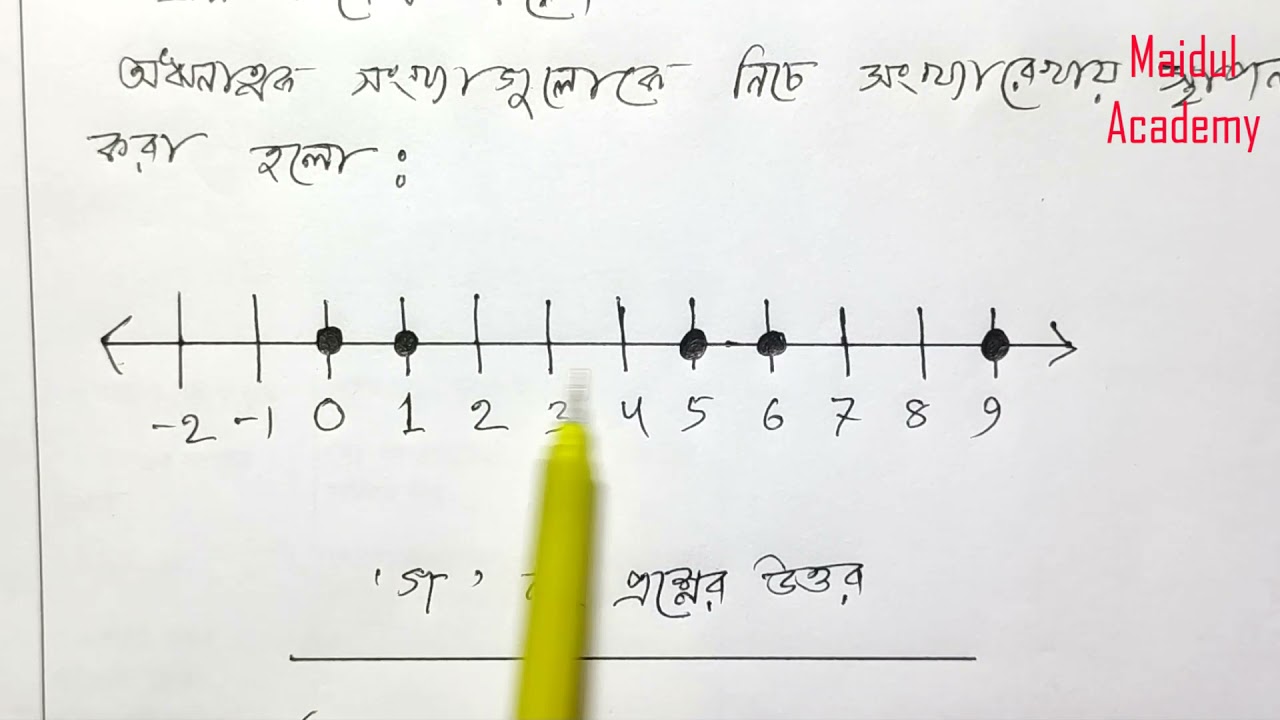 অঋনাত্মক সংখ্যাগুলোকে নিচে সংখ্যারেখায় স্থাপন
করা হলো :
Maidul
Academy
-2 -1 0 1 2 3 4 5 6 7 8 9
'গ' প্রশ্নের উত্তর